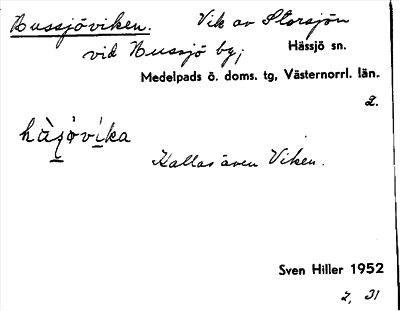 Hussjöviken. Vik av Storsjön
vid Hussjö by; Hässjö sn.
Medelpads ö. doms. tg, Västernorrl. län.
2.
Kallas även Viken.
Sven Hiller 1952
2, 31